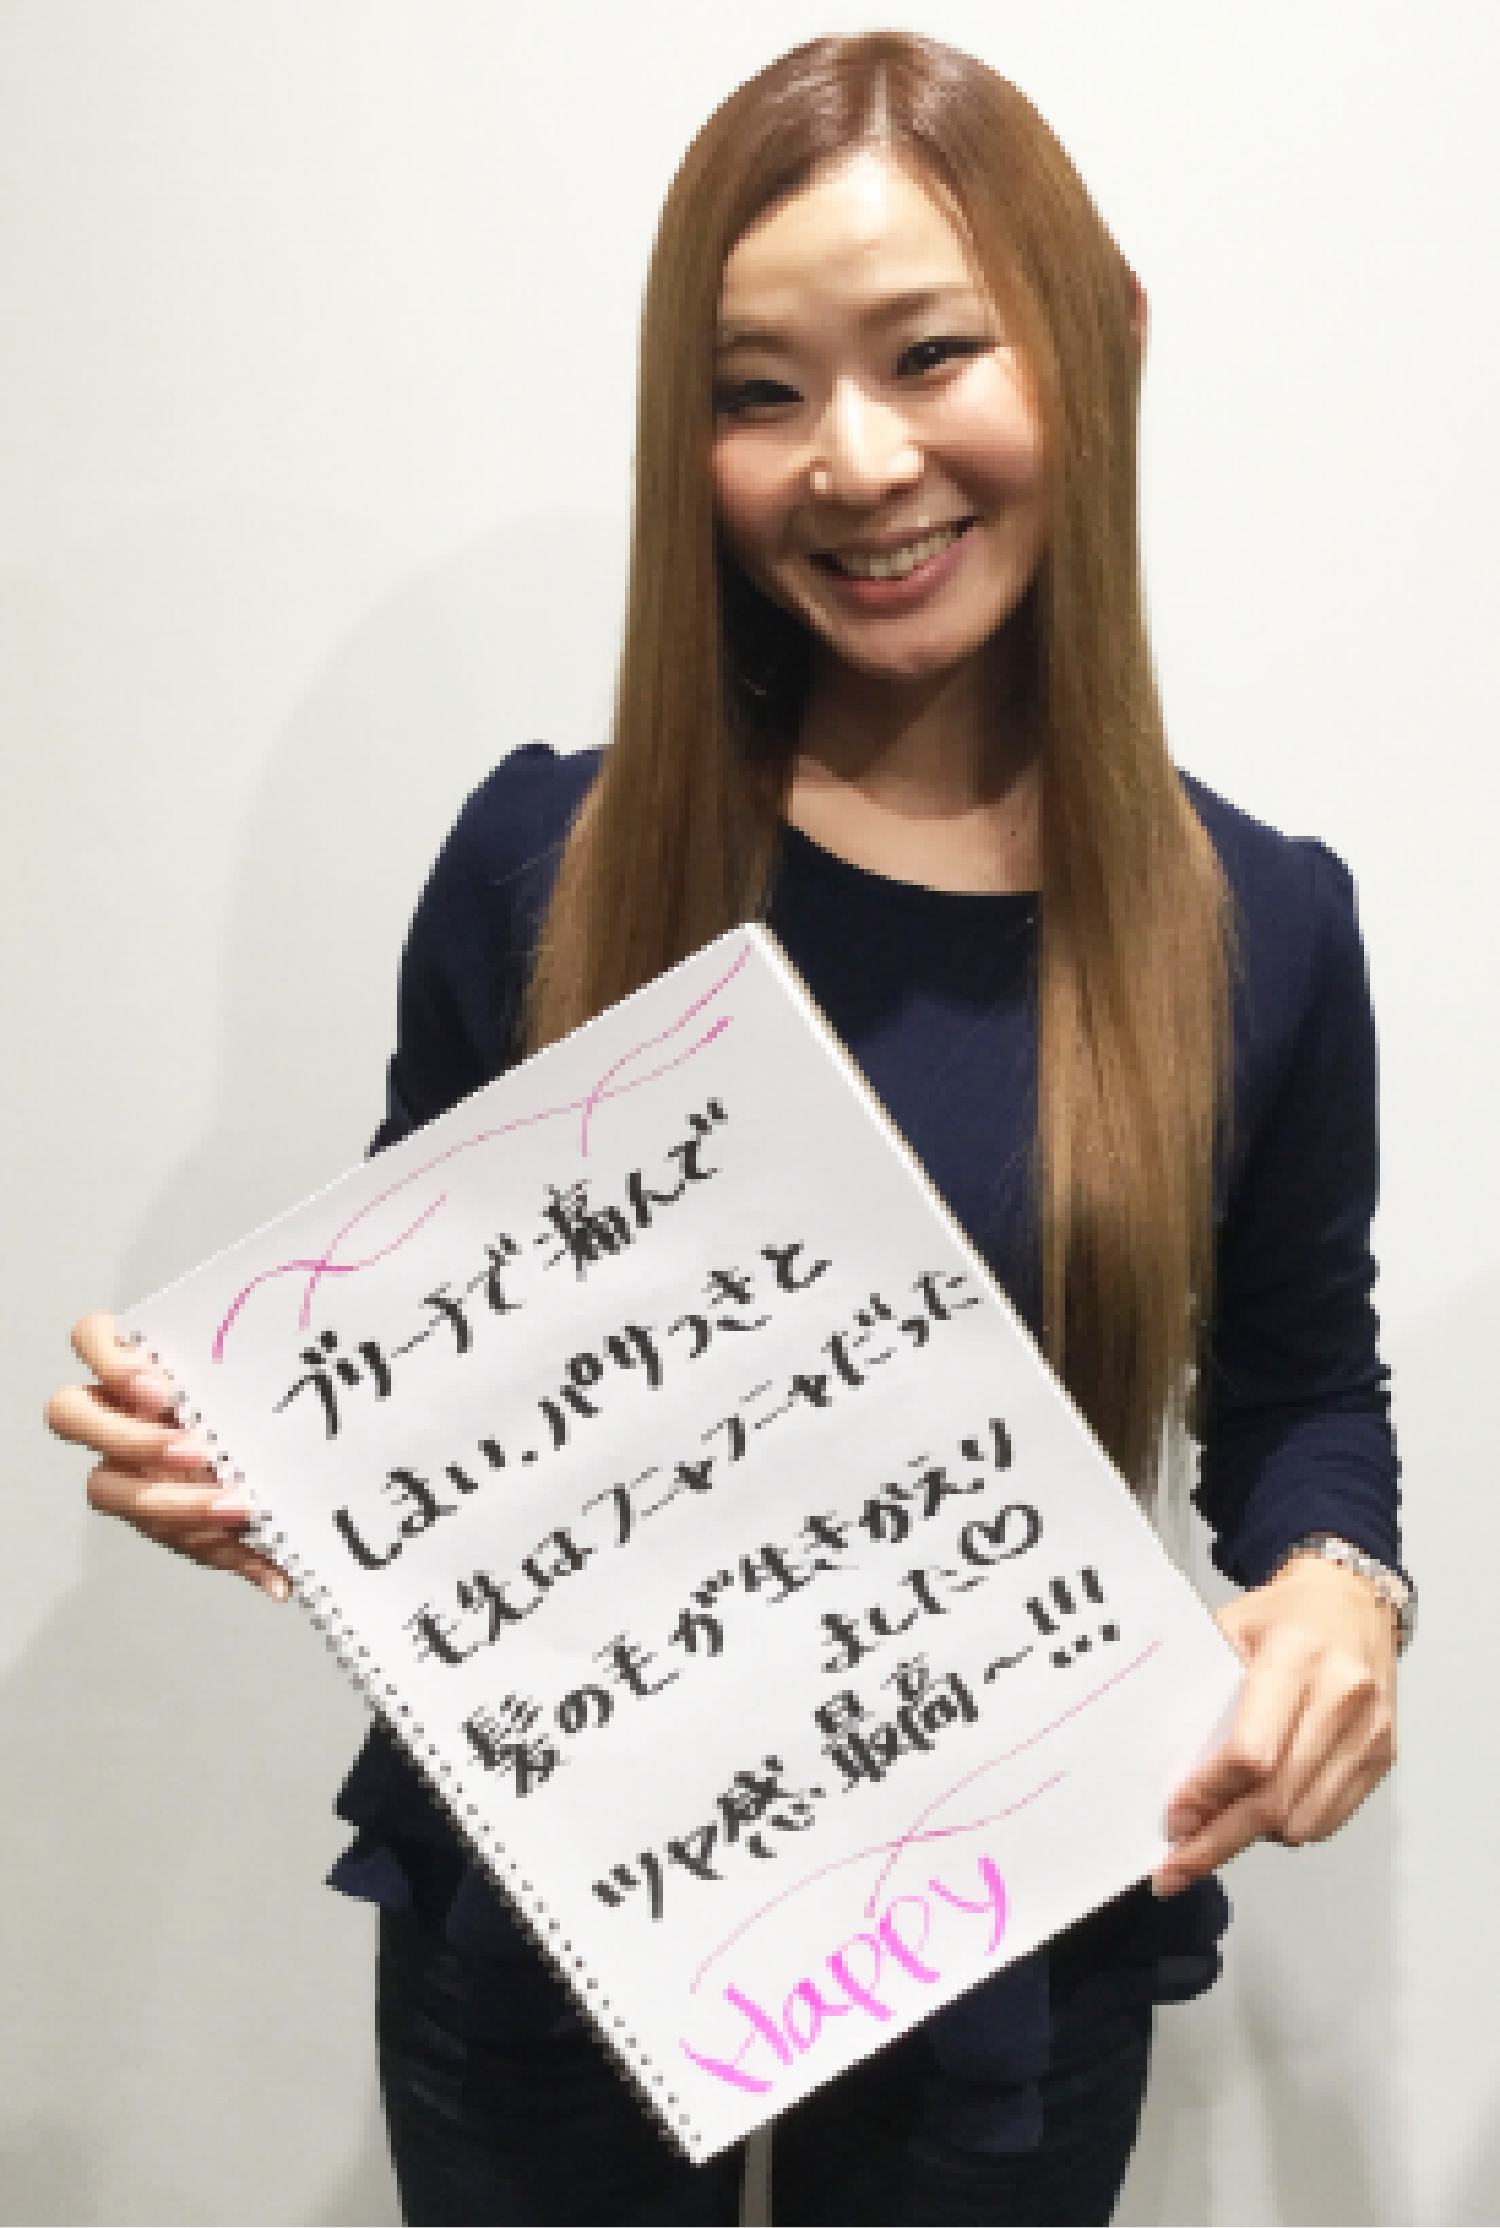 ブリーチで痛んで
しまい、パサつきと
毛先はフニャフニャだった
髪の毛が生きかえり
ました♡
ツヤ感、最高〜!!!
Happy